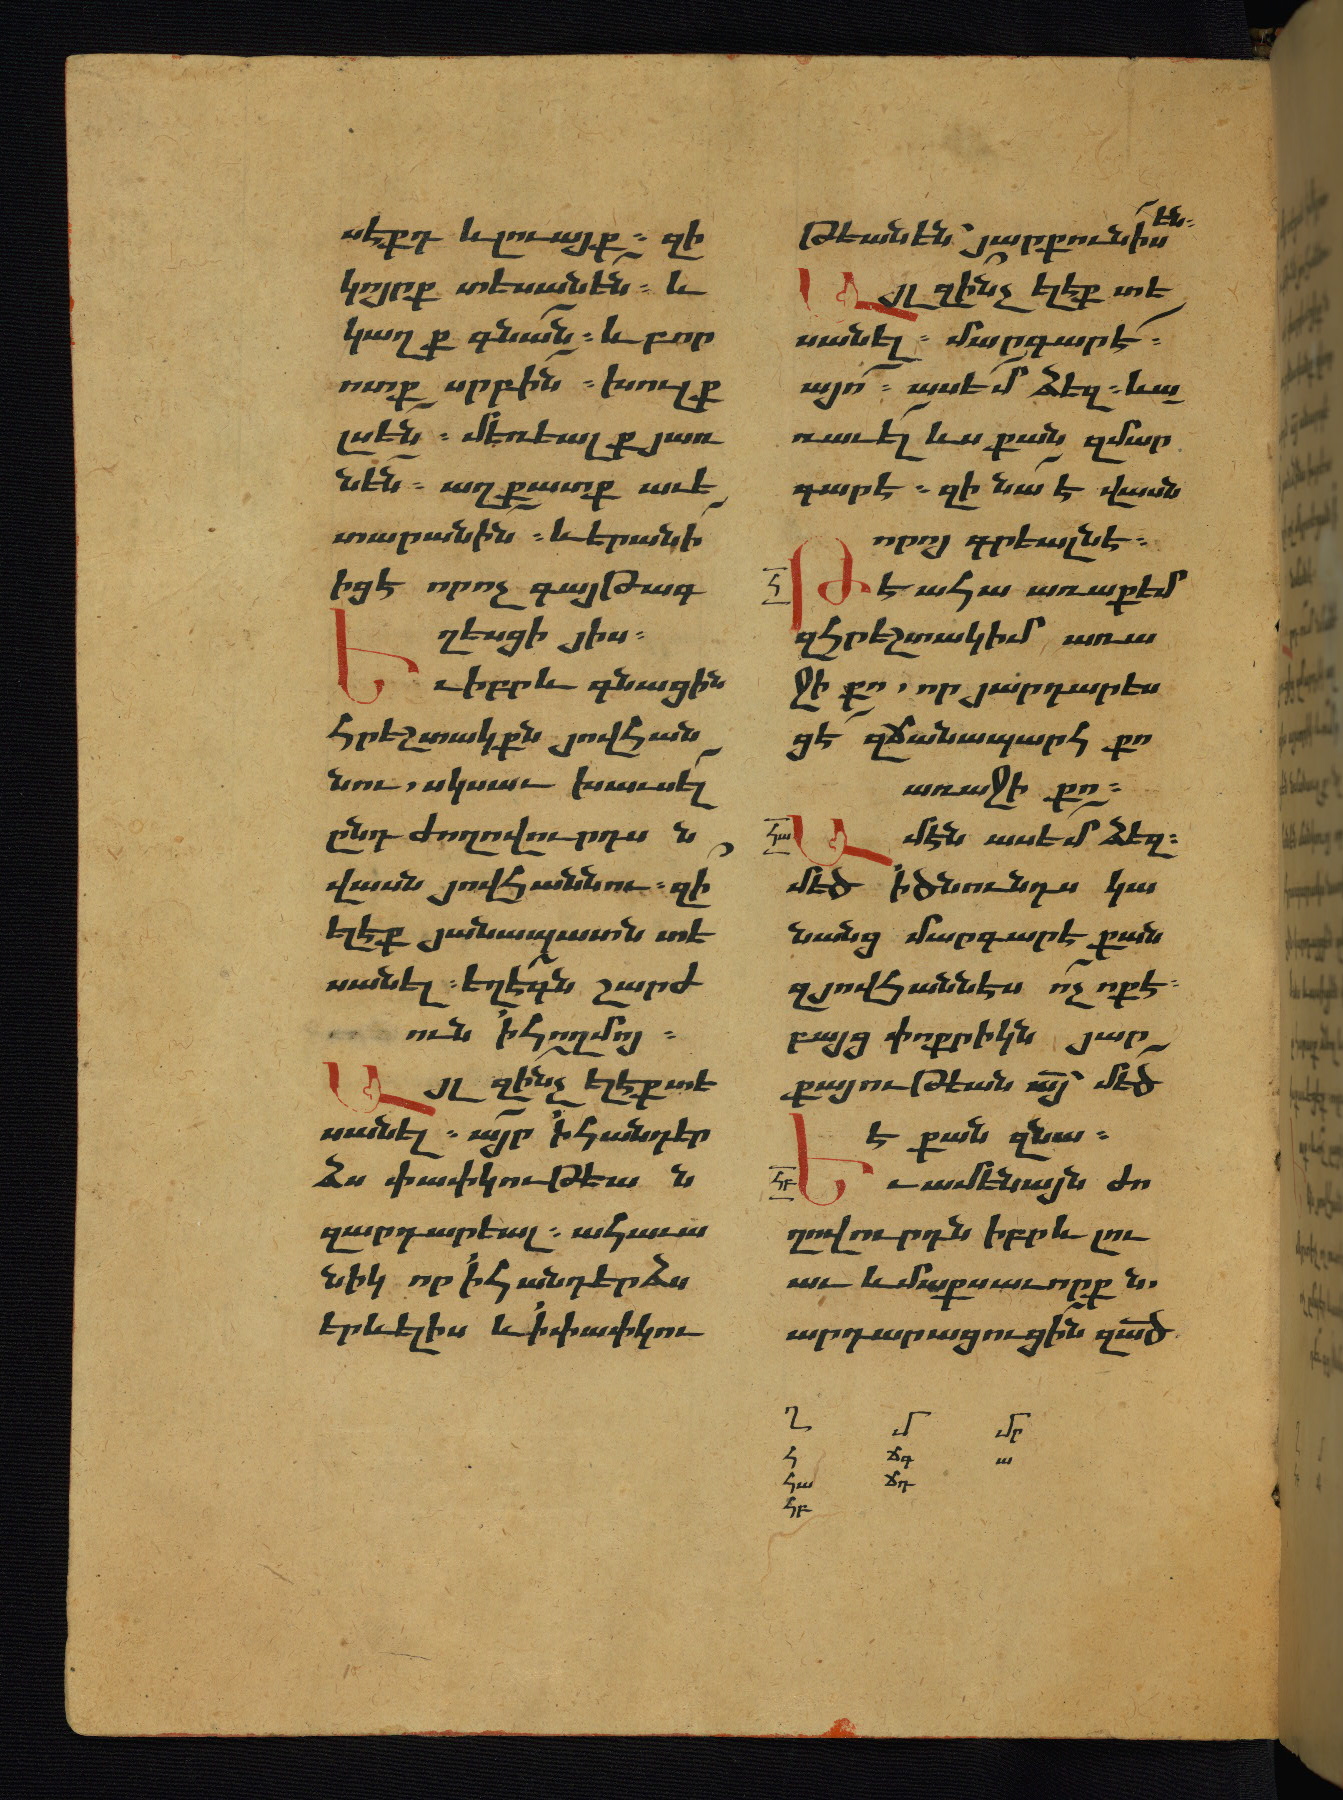 սէքդ և լուայք։ զի
կոյրք տեսանեն։ և
կաղք գնան։ և բոր
ոտք սրբին։ խուլք
լսեն։ մեռեալք յառ
նեն։ աղքատք աւե
տարանին։ և երանի
իցէ որոչ գայթագ
ղեսցի յիս։
Եւ իբրև գնացին
հրեշտակքն յովհան
նու, սկսաւ խաւսել
ընդ ժողովուրդս ն
վասն յովհաննու։ զի
ելէք յանապատն տե
սանել։ եղեգն շարժ
ուն ի հողմոյ։
Այլ զինչ ելէք տե
սանել։ այր ի հանդեր
ձս փափկութեա ն
զարդարեալ։ ահաւա
նիկ որ ի հանդերձս
երևելիս և ի փափկու
թեանեն՝ յարքունիս
են։
Այլ զինչ ելէք տե
սանել։ մարգարէ։
այո։ ասեմ ձեզ։ և ա
ռաւել ևս քան զմար
գարէ։ զի նա է վասն
որոյ գրեալնէ։
Հ Թէ ահա առաքեմ
զհրեշտակիմ առա
ջի քո, որ յարդարես
ցէ զճանապարհ քո
առաջի քո։
ՀԱ Ամէն ասեմ ձեզ։
մեծ ի ծնունդս կա
նանց մարգարէ քան
զյովհաննես ոչ ոքէ։
բայց փոքրիկն յար
քայութեան այ՝ մեծ
է քան զնա։
ՀԲ Եւ ամենայն ժո
ղովուրդն իբրև լու
աւ և մաքսաւորք ն,
արդարացուցին զած
Ղ Մ ՄԸ
Հ ՃԳ Ա
ՀԱ ՃԴ
ՀԲ